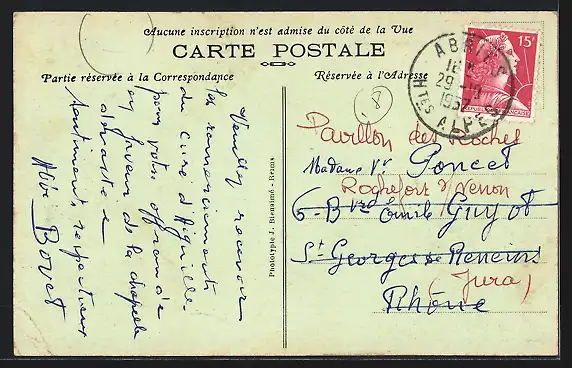 Aucune inscription n'est admise du côté de la Vue
CARTE POSTALE
Partie réservée à la Correspondance
Réservée à l'Adresse
Veuillez recevoir
les remerciements
du curé d'Aiguilles
pour votre offrande
en faveur de la chapelle
dévastée
sentiments respectueux
Abbé Bovet
Phototypie J. Bienaimé - Reims
8
15F
FRANÇAISE
ABRIES
18
29
1957
HTES ALPES
Pavillon des Roches
Madame Vve Poncet
Rochefort s/ Nenon
6 - Bvd Emile Guyot
St Georges de Reneins
(Jura)
Rhône